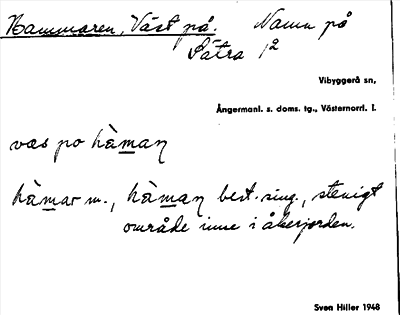 Hammaren, Väst på. Namn på
Sätra 1²
Vibyggerå sn,
Ångermanl. s. doms. tg., Västernorrl. l.
væs po hàman
hàmar m., hàman best. sing., stenigt
område inne i åkerjorden.
Sven Hiller 1948